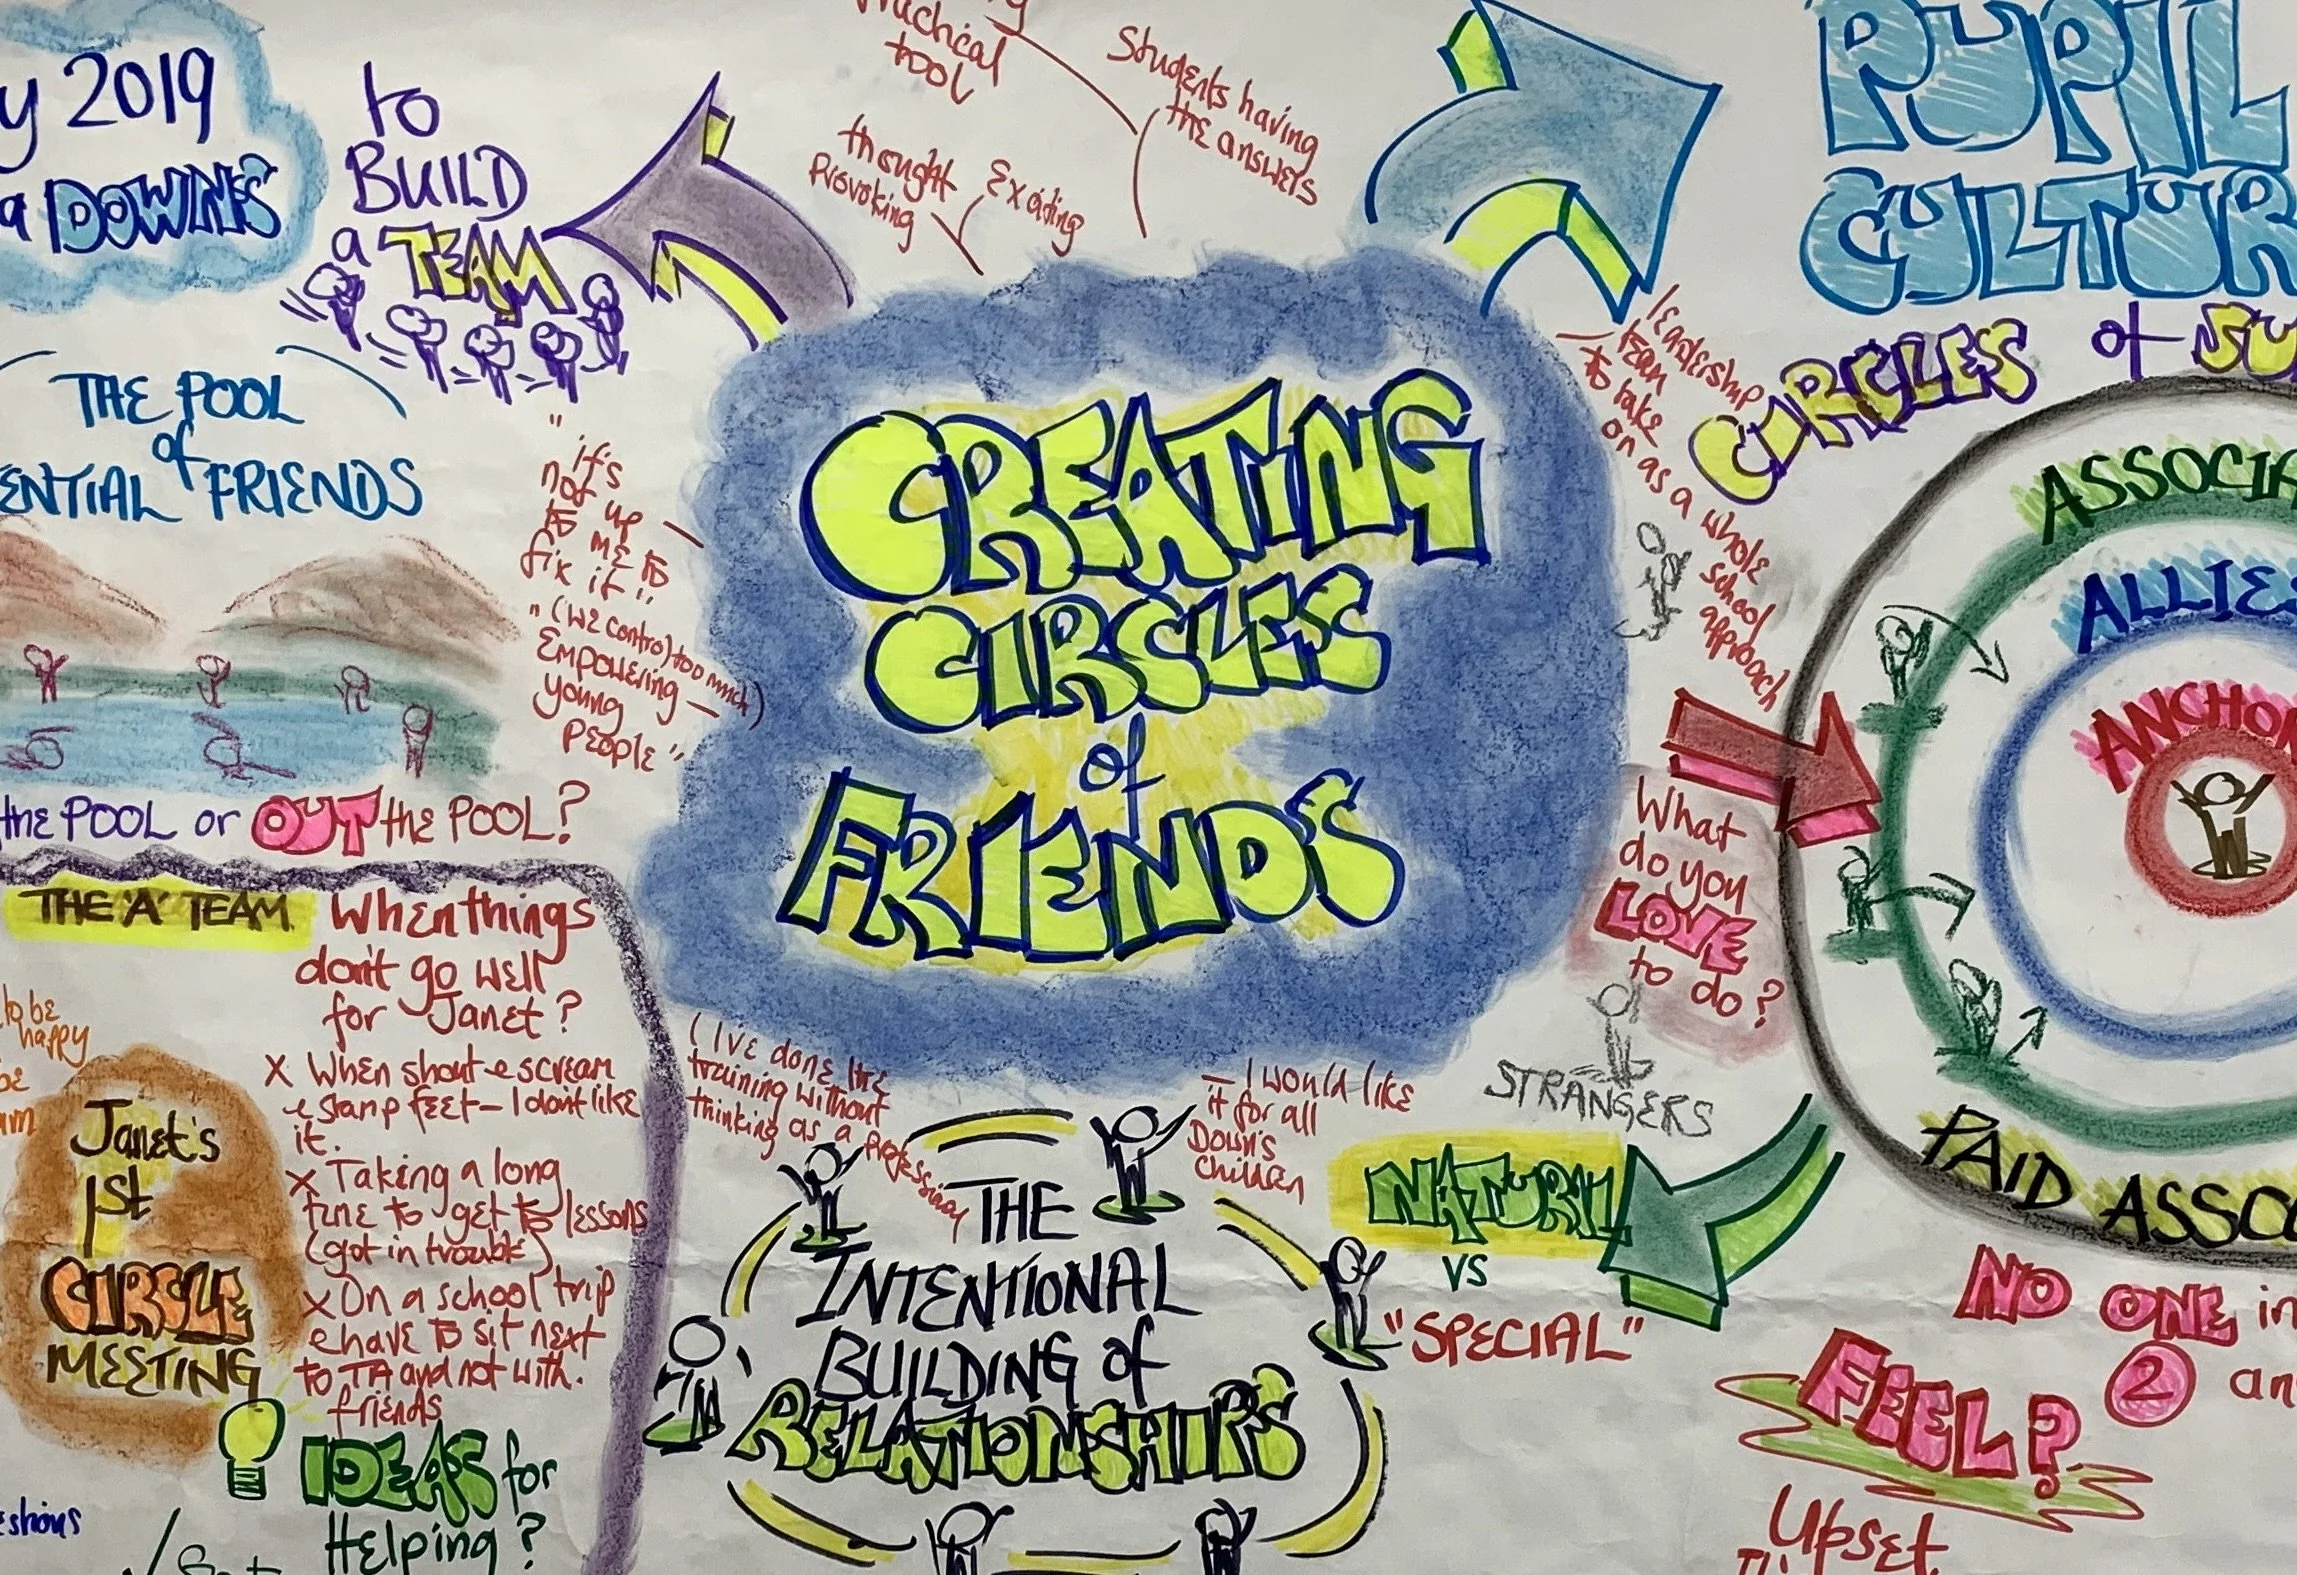 y 2019
a DOWNS
to
BUILD
a TEAM
Practical
tool
thought
Provoking
Exciting
Students having
the answers
PUPIL
CULTUR
leadership
team
to take
on as a whole
school
approach
CIRCLES of SU
THE POOL
of
ENTIAL FRIENDS
the POOL or OUT the POOL?
"it's
not up
to me to
fix it"
"(we control too much)
Empowering
young
People"
CREATING
CIRCLES
of
FRIENDS
ASSOCIA
ALLIES
ANCHOR
What
do you
LOVE
to do?
STRANGERS
PAID ASSOC
THE 'A' TEAM
to be
happy
be
Janet's
1st
CIRCLE
MEETING
When things
don't go well
for Janet?
X When shout e scream
e stamp feet – I don't like
it.
X Taking a long
time to get to lessons
(got in trouble)
X On a school trip
e have to sit next
to TA and not with.
friends
IDEAS for
Helping?
estions
(I've done the
training without
thinking as a
Professional
– I would like
it for all
Down's
Children
THE
INTENTIONAL
BUILDING of
RELATIONSHIPS
NATURAL
VS
"SPECIAL"
NO ONE in
FEEL?
2 an
Upset